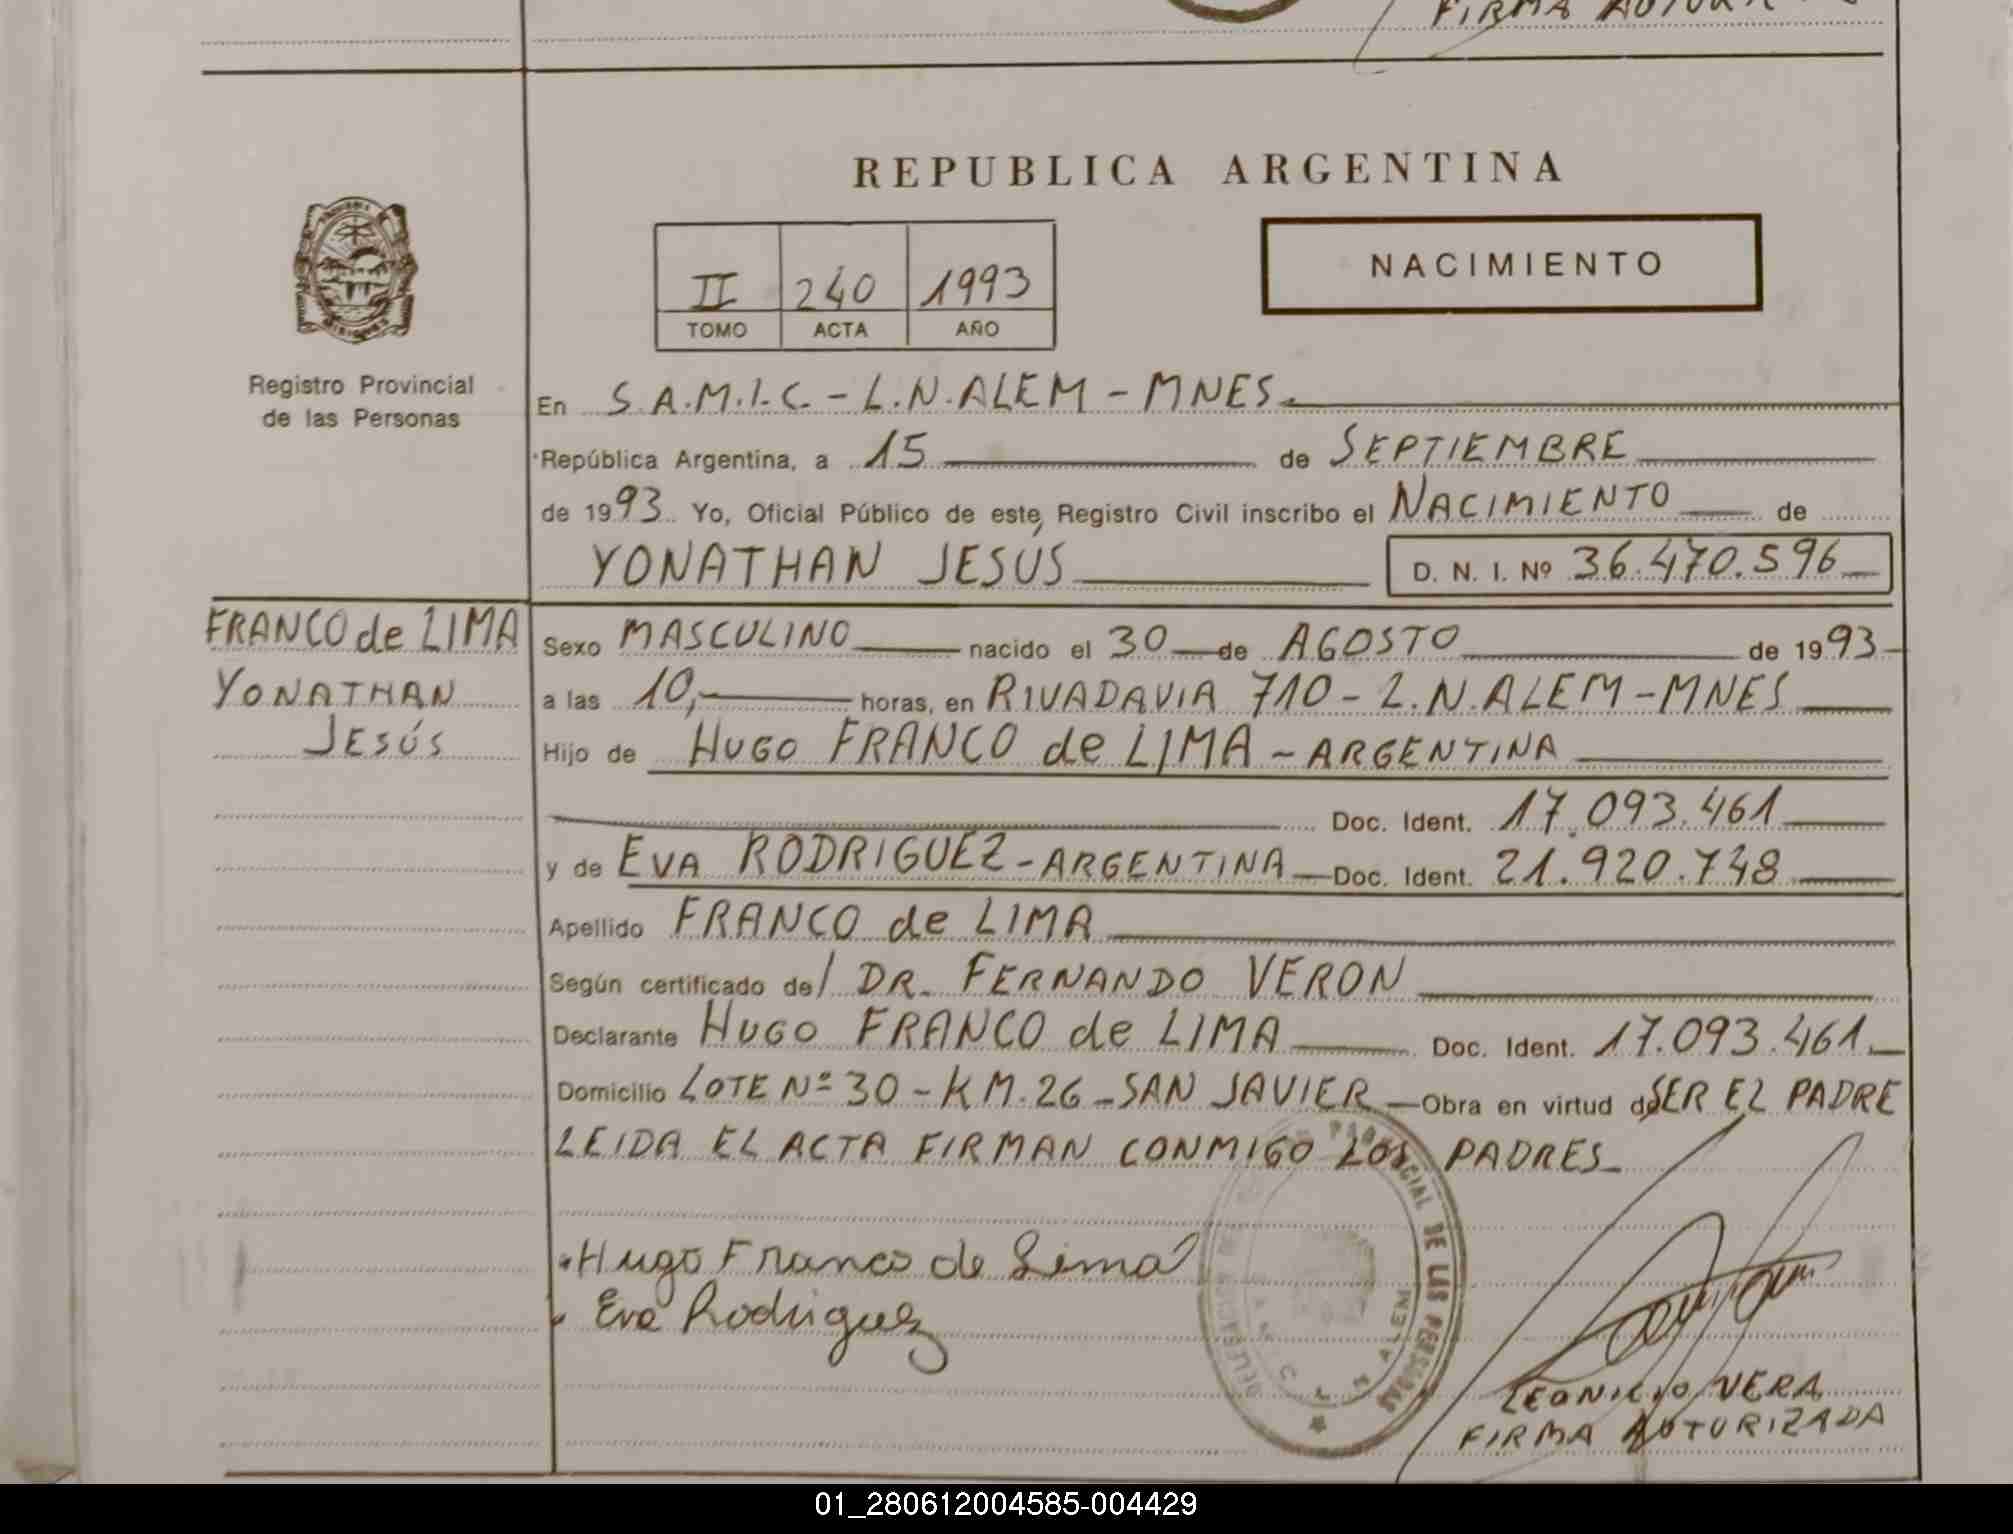 FIRMA AUTORIZADA
REPUBLICA ARGENTINA
NACIMIENTO
II 240 1993
TOMO ACTA AÑO
Registro Provincial
de las Personas
En S.A.M.I.C. - L.N. ALEM - MNES.
República Argentina, a 15 de SEPTIEMBRE
de 1993 Yo, Oficial Público de este Registro Civil inscribo el NACIMIENTO de
YONATHAN JESÚS D. N. I. Nº 36.470.596
FRANCO de LIMA
YONATHAN
JESÚS
Sexo MASCULINO nacido el 30 de AGOSTO de 1993
a las 10, horas, en RIVADAVIA 710 - L.N. ALEM - MNES
Hijo de HUGO FRANCO de LIMA - ARGENTINA
Doc. Ident. 17.093.461
y de EVA RODRIGUEZ - ARGENTINA Doc. Ident. 21.920.748
Apellido FRANCO de LIMA
Según certificado de/ DR. FERNANDO VERON
Declarante HUGO FRANCO de LIMA Doc. Ident. 17.093.461
Domicilio LOTE Nº 30 - KM. 26 - SAN JAVIER Obra en virtud de SER EL PADRE
LEIDA EL ACTA FIRMAN CONMIGO LOS PADRES
Hugo Franco de Lima
Eva Rodriguez
DE LAS PERSONAS
LEONICIO VERA
FIRMA AUTORIZADA
01_280612004585-004429